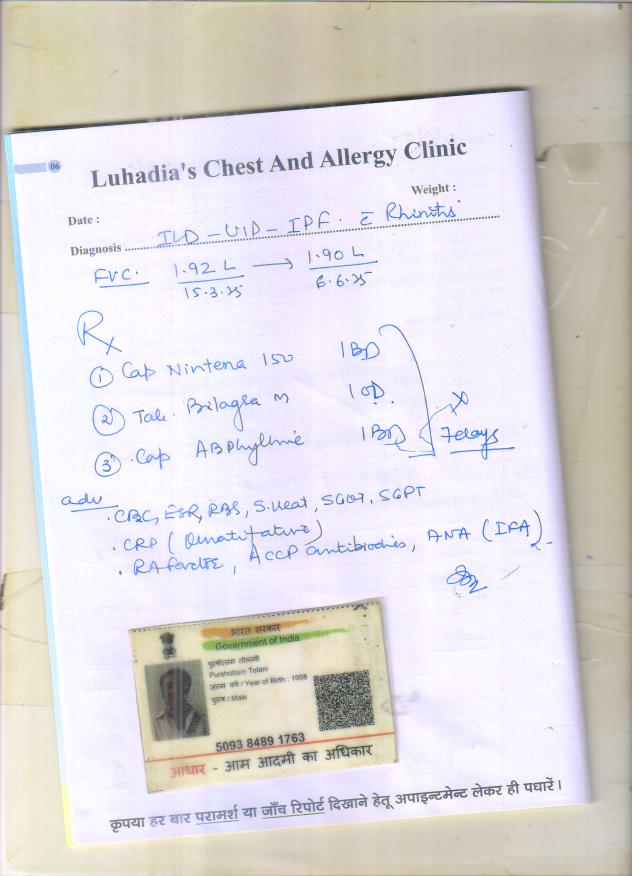 06
Luhadia's Chest And Allergy Clinic
Weight :
Date :
Diagnosis ILD - UIP - IPF. c̄ Rhinitis
FVC. 1.92 L → 1.90 L
15.3.25 6.6.25
Rx
① Cap Nintena 150 1 BD
② Tab. Bilagra M 1 OD.
③ Cap ABPhylline 1 BD x 7 days
adv
. CBC, ESR, RBS, S. , SGOT, SGPT
. CRP (Quantitative)
. RA factor, ACCP antibodies, ANA (IFA)
भारत सरकार
Government of India
पुरषोत्तम तोलानी
Purshottam Tolani
जन्म वर्ष / Year of Birth : 1958
पुरुष / Male
5093 8489 1763
आधार - आम आदमी का अधिकार
कृपया हर बार परामर्श या जाँच रिपोर्ट दिखाने हेतू अपाइन्टमेन्ट लेकर ही पधारें।